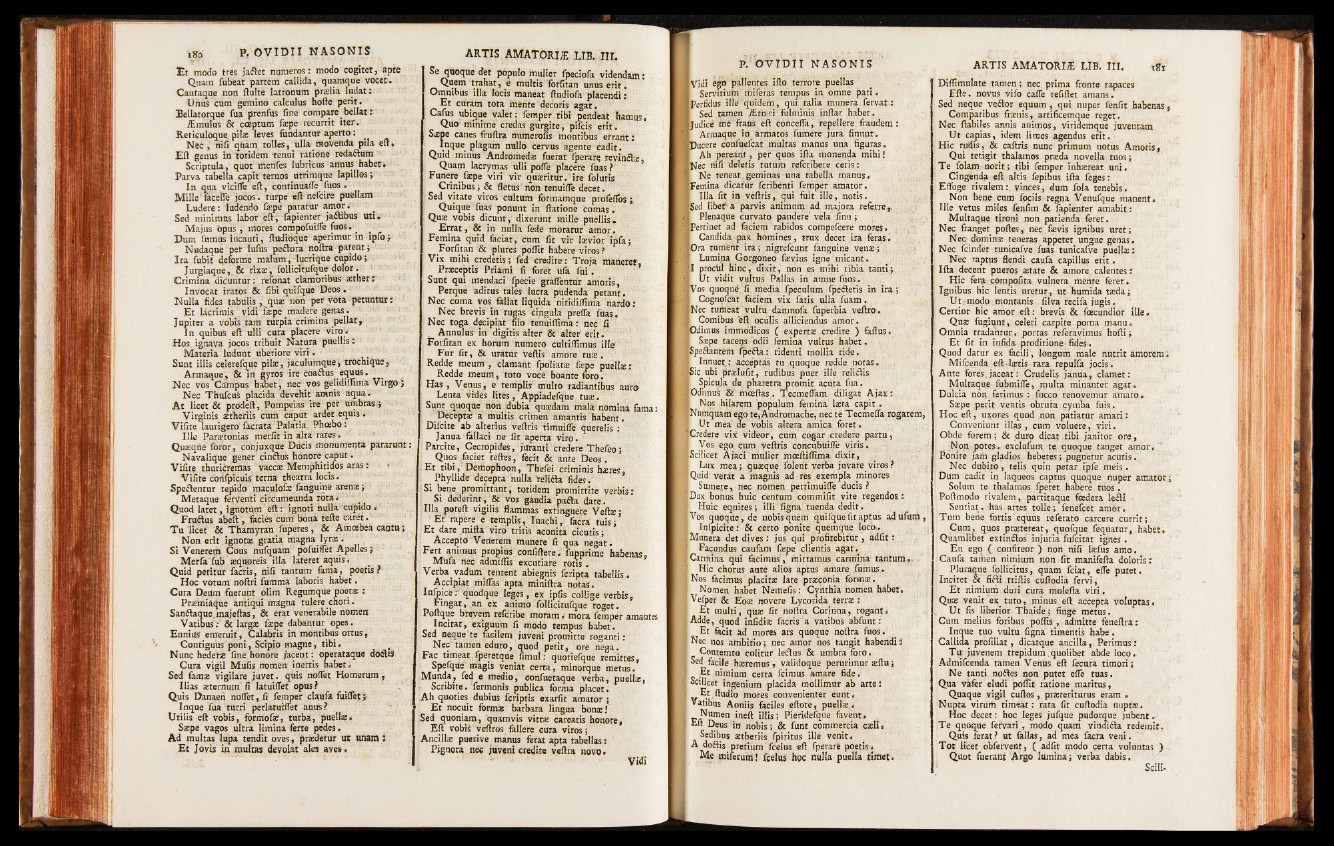 180 P. OVIDII NASONIS
Et modo tres jactet numeros: modo cogitet, apte
Quam subeat partem callida, quamque vocet.
Cautaque non stulte latronum prælia ludat:
Unus cum gemino calculus hoste perit.
Bellatorque sua prensus sine compare bellat:
Æmulus & cœptum sæpe recurrit iter.
Reticuloque pilæ leves fundantur aperto:
Nec, nisi quam tolles, ulla movenda pila est.
Est genus in totidem tenui ratione redactum
Scriptula, quot menses lubricus annus habet.
Parva tabella capit ternos utrimque lapillos;
In qua vicisse est, continuasse suos.
Mille facesse jocos. turpe est nescire puellam
Ludere: ludendo sæpe paratur amor.
Sed minimus labor est, sapienter jactibus uti.
Majus opus, mores composuisse suos.
Dum sumus incauti, studioque aperimur in ipso;
Nudaque per lusus pectora nostra patent;
Ira subit deforme malum, lucrique cupido;
Jurgiaque, & rixæ, sollicitusque dolor.
Crimina dicuntur: resonat clamoribus æther:
Invocat iratos & sibi quisque Deos.
Nulla fides tabulis, quæ non per vota petuntur:
Et lacrimis vidi sæpe madere genas.
Jupiter a vobis tam turpia crimina pellat,
In quibus est ulli cura placere viro.
Hos ignava jocos tribuit Natura puellis:
Materia ludunt uberiore viri.
Sunt illis celeresque pilæ, jaculumque, trochique,
Armaque, & in gyros ire coactus equus.
Nec vos Campus habet, nec vos gelidissima Virgo;
Nec Thuscus placida devehit amnis aqua.
At licet & prodest, Pompeias ire per umbras;
Virginis ætheriis cum caput ardet equis.
Visite laurigero sacrata Palatia Phœbo:
Ille Parætonias mersit in alta rates.
Quæque soror, conjuxque Ducis monumenta pararunt:
Navalique gener cinctus honore caput.
Visite thuricremas vaccæ Memphitidos aras:
Visite conspicuis terna theatra locis.
Spectentur tepido maculosæ sanguine arenæ;
Metaque ferventi circumeunda rota.
Quod latet, ignotum est: ignoti nulla cupido.
Fructus abest, facies cum bona teste caret.
Tu licet & Thamyran superes, & Amœbea cantu;
Non erit ignotæ gratia magna lyræ.
Si Venerem Cous nusquam posuisset Apelles;
Mersa sub æquoreis illa lateret aquis.
Quid petitur sacris, nisi tantum fama, poetis?
Hoc votum nostri summa laboris habet.
Cura Deum fuerunt olim Regumque poetæ:
Præmiaque antiqui magna tulere chori.
Sanctaque majestas, & erat venerabile nomen
Vatibus: & largæ sæpe dabantur opes.
Ennius emeruit, Calabris in montibus ortus,
Contiguus poni, Scipio magne, tibi.
Nunc hederæ sine honore jacent: operataque doctis
Cura vigil Musis nomen inertis habet.
Sed famæ vigilare juvet. quis nosset Homerum,
Ilias æternum si latuisset opus?
Quis Danaen nosset, si semper clausa fuisset;
Inque sua turri perlatuisset anus?
Utilis est vobis, formosæ, turba, puellæ.
Sæpe vagos ultra limina ferte pedes.
Ad multas lupa tendit oves, prædetur ut unam:
Et Jovis in multas devolat ales aves.
ARTIS AMATORIÆ LIB. III.
Se quoque det populo mulier speciosa videndam:
Quem trahat, e multis forsitan unus erit.
Omnibus illa locis maneat studiosa placendi:
Et curam tota mente decoris agat.
Casus ubique valet: semper tibi pendeat hamus.
Quo minime credas gurgite, piscis erit.
Sæpe canes frustra numerosis montibus errant:
Inque plagam nullo cervus agente cadit.
Quid minus Andromedæ fuerat sperare revinctæ,
Quam lacrymas ulli posse placere suas?
Funere sæpe viri vir quæritur. ire solutis
Crinibus; & fletus non tenuisse decet.
Sed vitate viros cultum formamque professos;
Quique suas ponunt in statione comas.
Quæ vobis dicunt, dixerunt mille puellis.
Errat, & in nulla sede moratur amor.
Femina quid faciat, cum sit vir lævior ipsa;
Forsitan & plures possit habere viros?
Vix mihi credetis; sed credite: Troja maneret,
Præceptis Priami si foret usa sui.
Sunt qui mendaci specie grassentur amoris,
Perque aditus tales lucra pudenda petant.
Nec coma vos fallat liquida nitidissima nardo:
Nec brevis in rugas cingula pressa suas.
Nec toga decipiat filo tenuissima: nec si
Annulus in digitis alter & alter erit.
Forsitan ex horum numero cultissimus ille
Fur sit, & uratur vestis amore tuæ.
Redde meum, clamant spoliatæ sæpe puellæ:
Redde meum, toto voce boante foro.
Has, Venus, e templis multo radiantibus auro
Lenta vides lites, Appiadesque tuæ.
Sunt quoque non dubia quædam mala nomina fama:
Deceptæ a multis crimen amantis habent.
Discite ab alterius vestris timuisse querelis:
Janua fallaci ne sit aperta viro.
Parcite, Cecropides, juranti credere Theseo;
Quos faciet testes, fecit & ante Deos.
Et tibi, Demophoon, Thesei criminis hæres,
Phyllide decepta nulla relicta fides.
Si bene promittant, totidem promittite verbis:
Si dederint, & vos gaudia pacta date.
Illa potest vigilis flammas extinguere Vestæ;
Et rapere e templis, Inachi, sacra tuis;
Et dare mista viro tritis aconita cicutis;
Accepto Venerem munere si qua negat.
Fert animus propius consistere. supprime habenas,
Musa nec admissis excutiare rotis.
Verba vadum tentent abiegnis scripta tabellis.
Accipiat missas apta ministra notas.
Inspice: quodque leges, ex ipsis collige verbis,
Fingat, an ex animo sollicitusque roget.
Postque brevem rescribe moram. mora semper amantes
Incitat, exiguum si modo tempus habet.
Sed neque te facilem juveni promitto roganti:
Nec tamen eduro, quod petit, ore nega.
Fac timeat speretque simul: quotiesque remittes,
Spesque magis veniat certa, minorque metus.
Munda, sed e medio, consuetaque verba, puellæ,
Scribite. sermonis publica forma placet.
Ah quoties dubius scriptis exarsit amator;
Et nocuit formæ barbara lingua bonæ!
Sed quoniam, quamvis vittæ careatis honore,
Est vobis vestros fallere cura viros;
Ancillæ puerive manus ferat apta tabellas:
Pignora nec juveni credite vestra novo.
Vidi
P. OVIDII NASONIS
Vidi ego pallentes isto terrore puellas
Servitium miseras tempus in omne pati.
Perfidus ille quidem, qui talia munera servat:
Sed tamen Ætnæi fulminis instar habet.
Judice me fraus est concessa, repellere fraudem:
Armaque in armatos sumere jura sinunt.
Ducere consuescat multas manus una figuras.
Ah pereant, per quos ista monenda mihi!
Nec nisi deletis tutum rescribere ceris:
Ne teneat geminas una tabella manus.
Femina dicatur scribenti semper amator.
Illa sit in vestris, qui fuit ille, notis.
Sed libet a parvis animum ad majora referre,
Plenaque curvato pandere vela sinu;
Pertinet ad faciem rabidos compescere mores.
Candida pax homines, trux decet ira feras.
Ora tument ira; nigrescunt sanguine venæ;
Lumina Gorgoneo sævius igne micant.
I procul hinc, dixit, non es mihi tibia tanti;
Ut vidit vultus Pallas in amne suos.
Vos quoque si media speculum spectetis in ira;
Cognoscat faciem vix satis ulla suam.
Nec tumeat vultu damnosa superbia vestro.
Comibus est oculis alliciendus amor.
Odimus immodicos ( expertæ credite ) fastus.
Sæpe tacens odii semina vultus habet.
Spectantem specta: ridenti mollia ride.
Innuet: acceptas tu quoque redde notas.
Sic ubi prælusit, rudibus puer ille relictis
Spicula de pharetra promit acuta sua.
Odimus & mœstas. Tecmessam diligat Ajax:
Nos hilarem populum femina læta capit.
Numquam ego te, Andromache, nec te Tecmessa rogarem,
Ut mea de vobis altera amica foret.
Credere vix videor, cum cogar credere partu,
Vos ego cum vestris concubuisse viris.
Scilicet Ajaci mulier mœstissima dixit,
Lux mea; quæque solent verba juvare viros?
Quid vetat a magnis ad res exempla minores
Sumere, nec nomen pertimuisse ducis?
Dux bonus huic centum commisit vite regendos:
Huic equites; illi signa tuenda dedit.
Vos quoque, de nobis quem quisque sit aptus ad usum,
Inspicite: & certo ponite quemque loco.
Munera det dives: jus qui profitebitur, adsit:
Facundus causam sæpe clientis agat.
Carmina qui facimus, mittamus carmina tantum.
Hic chorus ante alios aptus amare sumus.
Nos facimus placitæ late præconia formæ.
Nomen habet Nemesis: Cynthia nomen habet.
Vesper & Eoæ novere Lycorida terræ:
Et multi, quæ sit nostra Corinna, rogant.
Adde, quod insidiæ sacris a vatibus absunt:
Et facit ad mores ars quoque nostra suos.
Nec nos ambitio; nec amor nos tangit habendi:
Contemto colitur lectus & umbra foro.
Sed facile hæremus, validoque perurimur æstu;
Et nimium certa scimus amare fide.
Scilicet ingenium placida mollimur ab arte:
Et studio mores convenienter eunt.
Vatibus Aoniis faciles estote, puellæ.
Numen inest illis; Pieridesque favent.
Est Deus in nobis; & sunt commercia cæli.
Sedibus ætheriis spiritus ille venit.
A doctis pretium scelus est sperare poetis.
Me miserum! scelus hoc nulla puella timet.
ARTIS AMATORIÆ LIB. III. 181
Dissimulate tamen; nec prima fronte rapaces
Este. novus viso casse resistet amans.
Sed neque vector equum, qui nuper sensit habenas,
Comparibus frænis, artificemque reget.
Nec stabiles annis animos, viridemque juventam
Ut capias, idem limes agendus erit.
Hic rudis, & castris nunc primum notus Amoris,
Qui tetigit thalamos præda novella tuos;
Te solam norit; tibi semper inhæreat uni.
Cingenda est altis sepibus ista seges:
Effuge rivalem: vinces, dum sola tenebis.
Non bene cum sociis regna Venusque manent.
Ille vetus miles sensim & sapienter amabit:
Multaque tironi non patienda feret.
Nec franget postes, nec sævis ignibus uret;
Nec dominæ teneras appetet ungue genas.
Nec scindet tunicasve suas tunicasve puellæ:
Nec raptus flendi causa capillus erit.
Ista decent pueros ætate & amore calentes:
Hic fera composita vulnera mente feret.
Ignibus hic lentis uretur, ut humida tæda;
Ut modo montanis silva recisa jugis.
Certior hic amor est: brevis & fœcundior ille.
Quæ fugiunt, celeri carpite poma manu.
Omnia tradantur. portas reseravimus hosti;
Et sit in infida proditione fides.
Quod datur ex facili, longum male nutrit amorem.
Miscenda est lætis rara repulsa jocis.
Ante fores jaceat: Crudelis janua, clamet:
Multaque submisse, multa minanter agat.
Dulcia non ferimus: succo renovemur amaro.
Sæpe perit ventis obruta cymba suis.
Hoc est, uxores quod non patiatur amari:
Conveniunt illas, cum voluere, viri.
Obde forem: & duro dicat tibi janitor ore,
Non potes. exclusum te quoque tanget amor.
Ponite jam gladios hebetes; pugnetur acutis.
Nec dubito, telis quin petar ipse meis.
Dum cadit in laqueos captus quoque nuper amator;
Solum te thalamos speret habere tuos.
Postmodo rivalem, partitaque fœdera lecti
Sentiat. has artes tolle; senescet amor.
Tum bene fortis equus reserato carcere currit;
Cum, quos prætereat, quosque sequatur, habet.
Quamlibet extinctos injuria suscitat ignes.
En ego ( confiteor ) non nisi læsus amo.
Causa tamen nimium non sit manifesta doloris:
Pluraque sollicitus, quam sciat, esse putet.
Incitet & ficti tristis custodia servi,
Et nimium duri cura molesta viri.
Quæ venit ex tuto, minus est accepta voluptas.
Ut sis liberior Thaide; finge metus.
Cum melius foribus possis, admitte fenestra:
Inque tuo vultu signa timentis habe.
Callida prosiliat, dicatque ancilla, Perimus:
Tu juvenem trepidum quolibet abde loco.
Admiscenda tamen Venus est secura timori;
Ne tanti noctes non putet esse tuas.
Qua vafer eludi possit ratione maritus,
Quaque vigil custos, præteriturus eram.
Nupta virum timeat: rata sit custodia nuptæ.
Hoc decet: hoc leges jusque pudorque jubent.
Te quoque servari, modo quam vindicta redemit.
Quis ferat? ut fallas, ad mea sacra veni.
Tot licet observent, ( adsit modo certa voluntas )
Quot fuerant Argo lumina; verba dabis.
Scili-